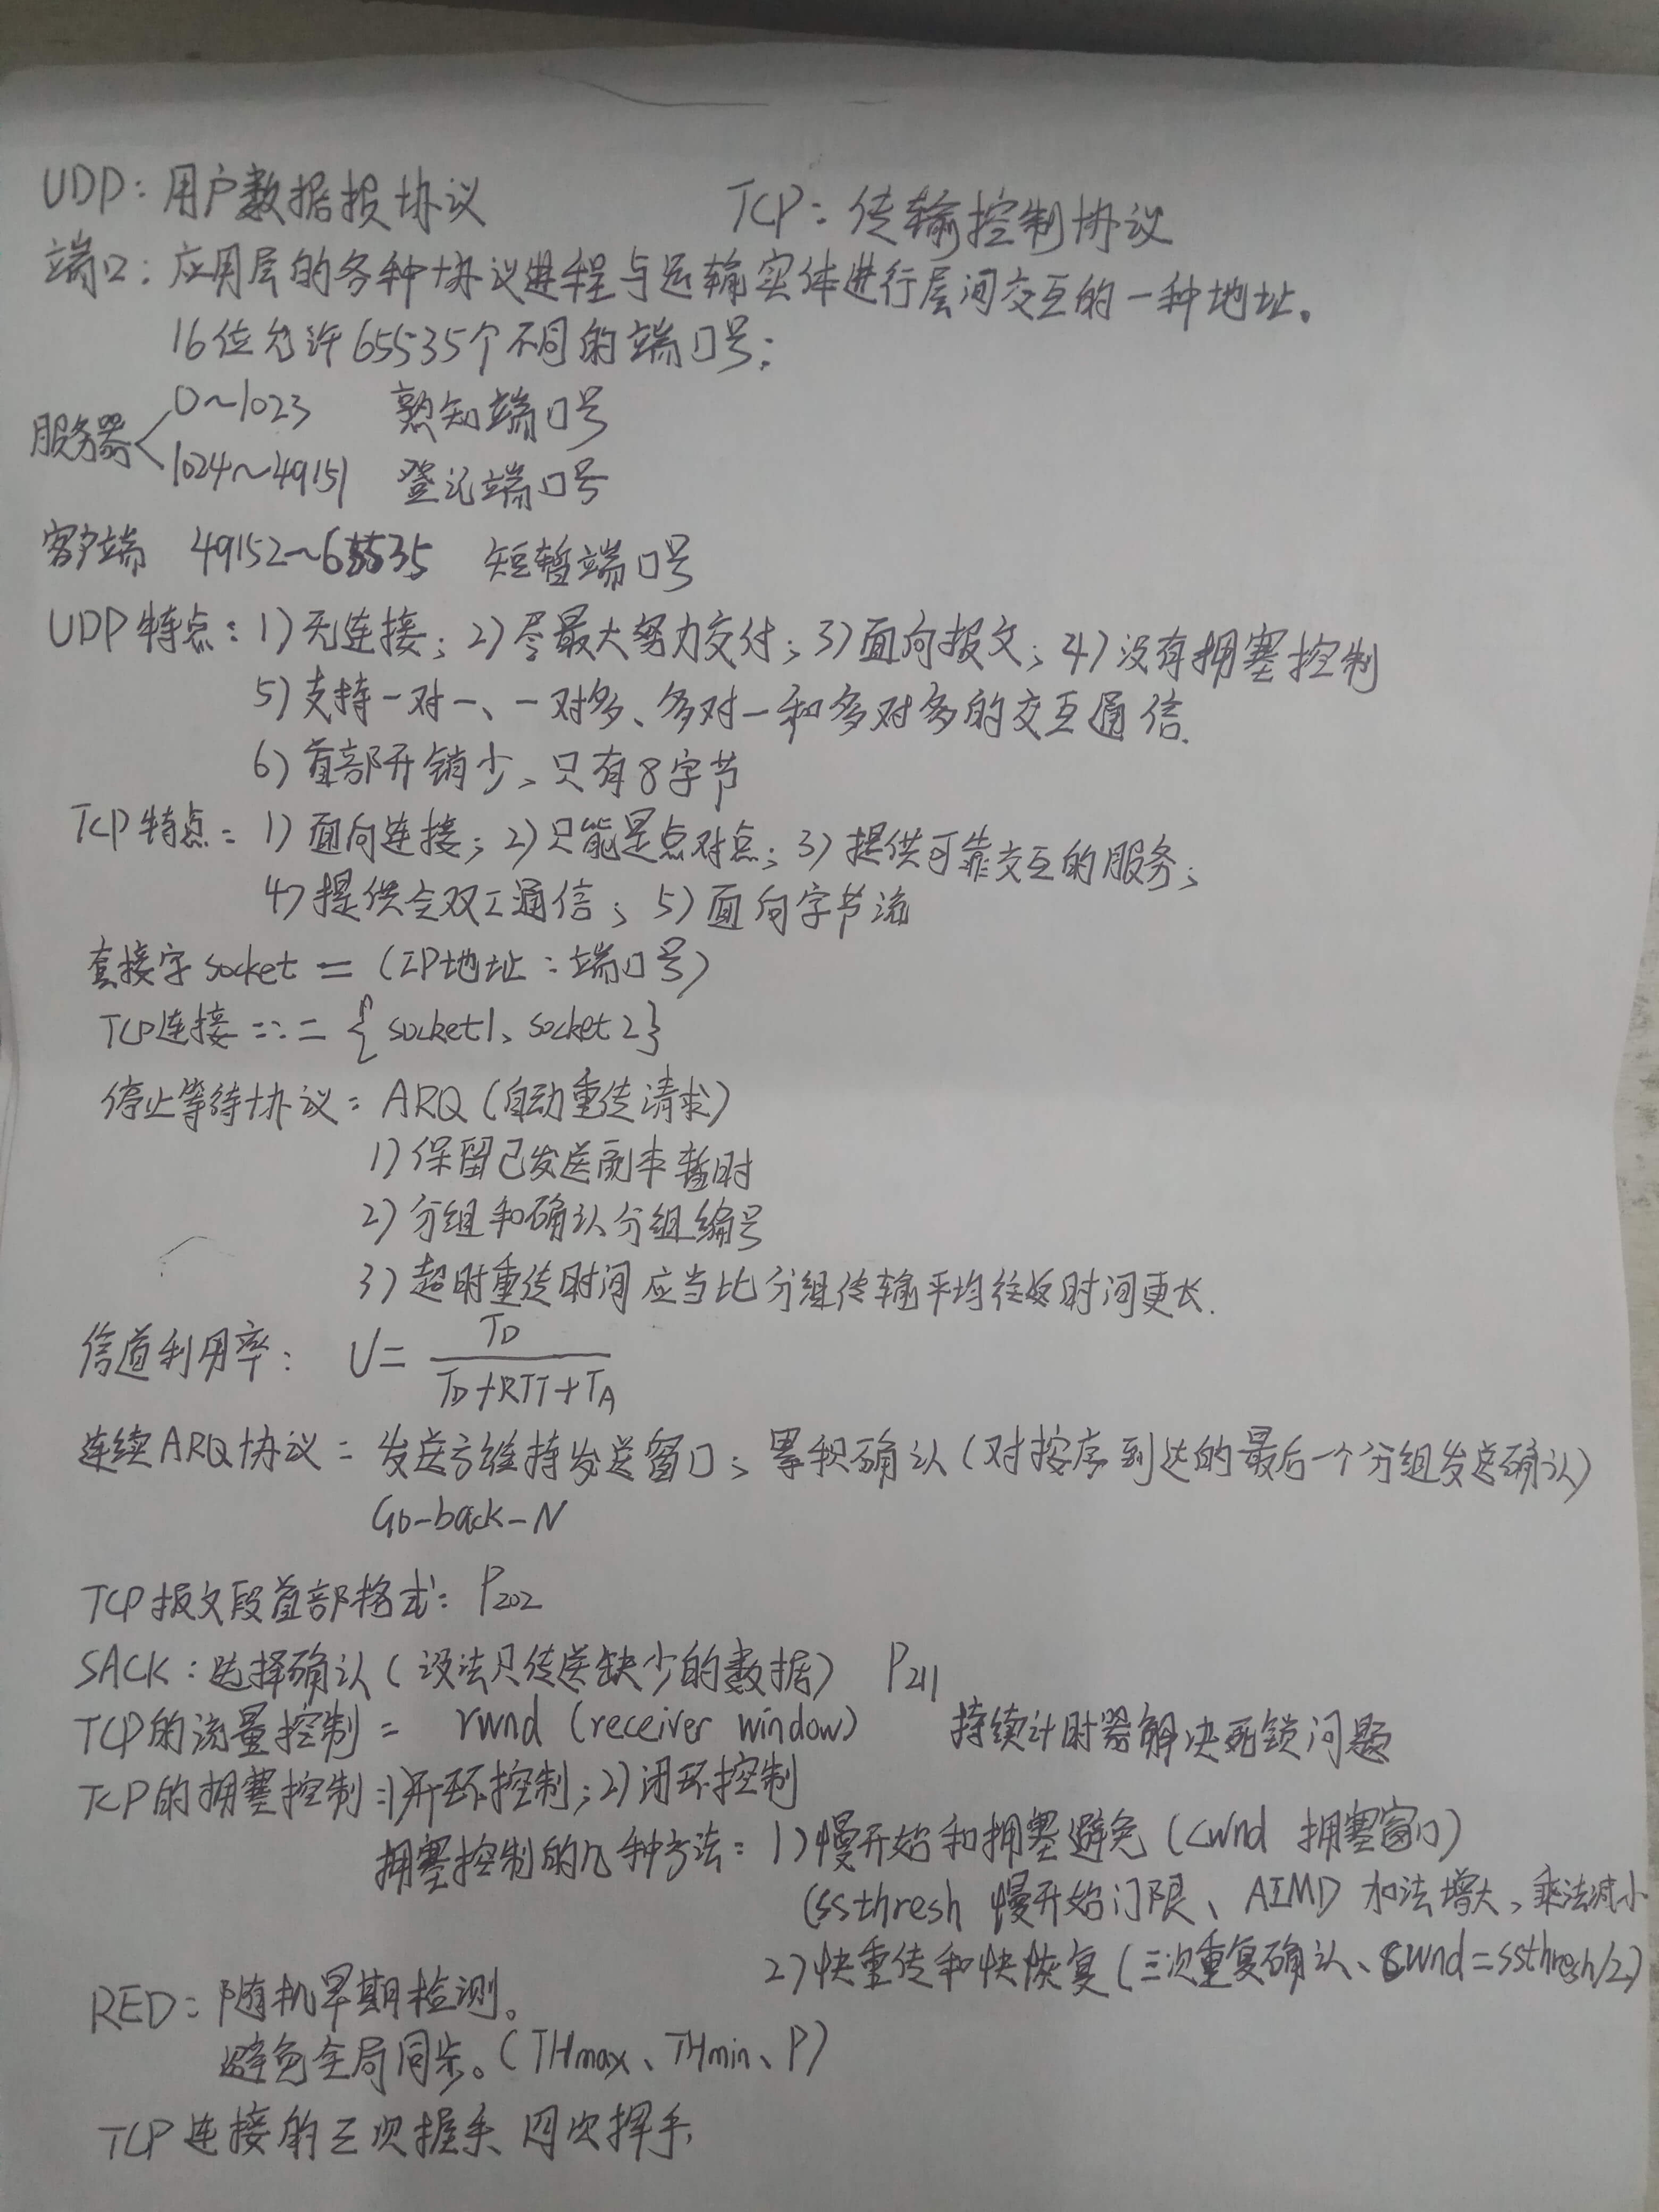 UDP：用户数据报协议　TCP：传输控制协议
端口：应用层的各种协议进程与运输实体进行层间交互的一种地址。
16位允许65535个不同的端口号：
服务器 0～1023 熟知端口号
1024～49151 登记端口号
客户端 49152～65535 短暂端口号
UDP特点：1）无连接；2）尽最大努力交付；3）面向报文；4）没有拥塞控制
5）支持一对一、一对多、多对一和多对多的交互通信.
6）首部开销少、只有8字节
TCP特点：1）面向连接；2）只能是点对点；3）提供可靠交互的服务；
4）提供全双工通信；5）面向字节流
套接字socket =（IP地址：端口号）
TCP连接 ::= {socket1、socket2}
停止等待协议：ARQ（自动重传请求）
1）保留已发送副本暂时
2）分组和确认分组编号
3）超时重传时间应当比分组传输平均往返时间更长.
信道利用率：U= TD / (TD+RTT+TA)
连续ARQ协议：发送方维持发送窗口；累积确认（对按序到达的最后一个分组发送确认）
Go-back-N
TCP报文段首部格式：P202
SACK：选择确认（设法只传送缺少的数据）P211
TCP的流量控制： rwnd（receiver window） 持续计时器解决死锁问题
TCP的拥塞控制：1)开环控制；2)闭环控制
拥塞控制的几种方法：1)慢开始和拥塞避免（cwnd 拥塞窗口）
(ssthresh 慢开始门限、AIMD 加法增大、乘法减小
2)快重传和快恢复（三次重复确认、cwnd=ssthresh/2）
RED：随机早期检测。
避免全局同步。（THmax、THmin、P）
TCP连接的三次握手、四次挥手.